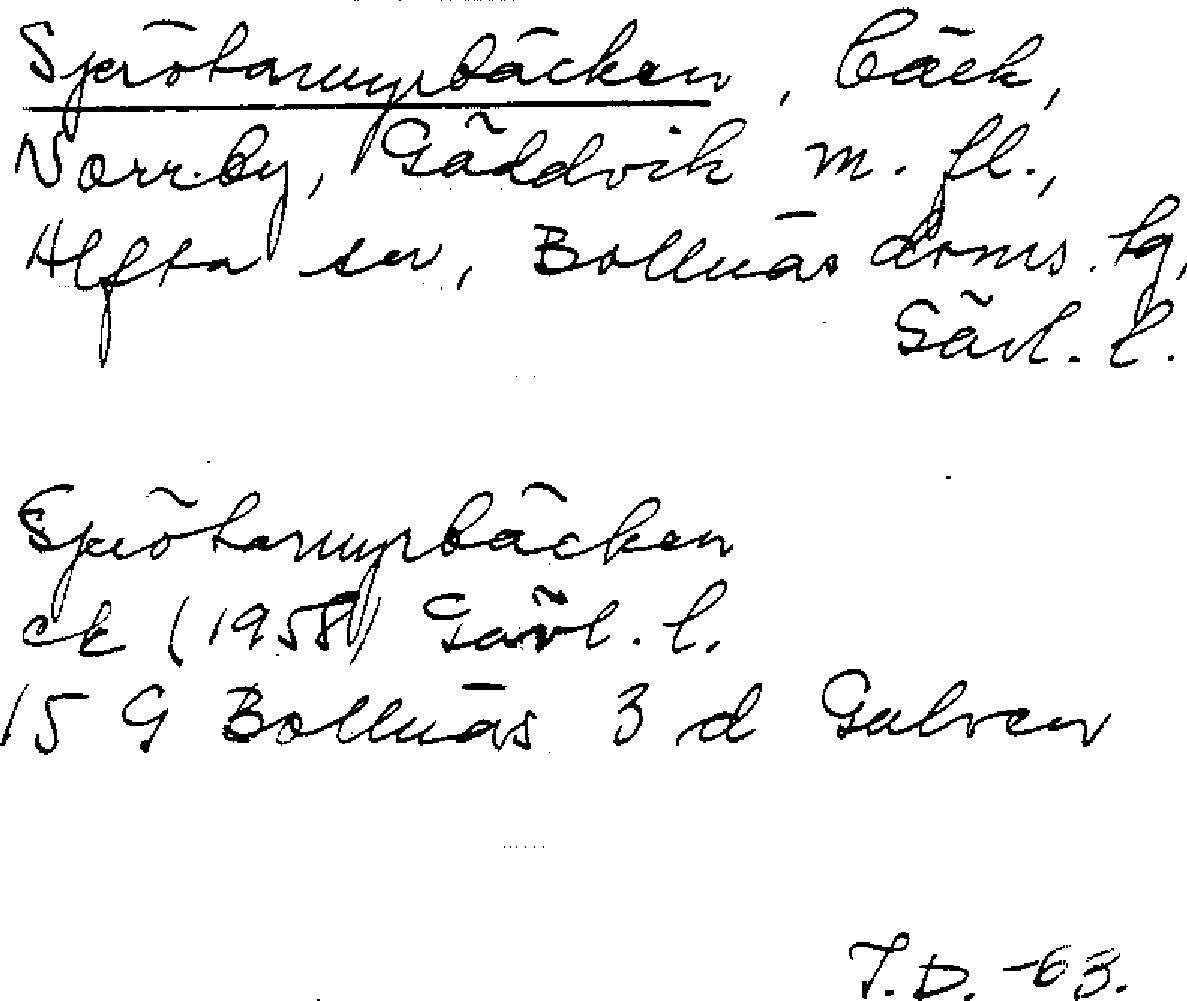 Sprötarmyrbäcken, bäck,
Norrby, Gäddvik m. fl.,
Alfta sn, Bollnäs doms. tg,
Gävl. l.
Sprötarmyrbäcken
ek (1958) Gävl. l.
15 G Bollnäs 3 d Galven
T.D. -63.